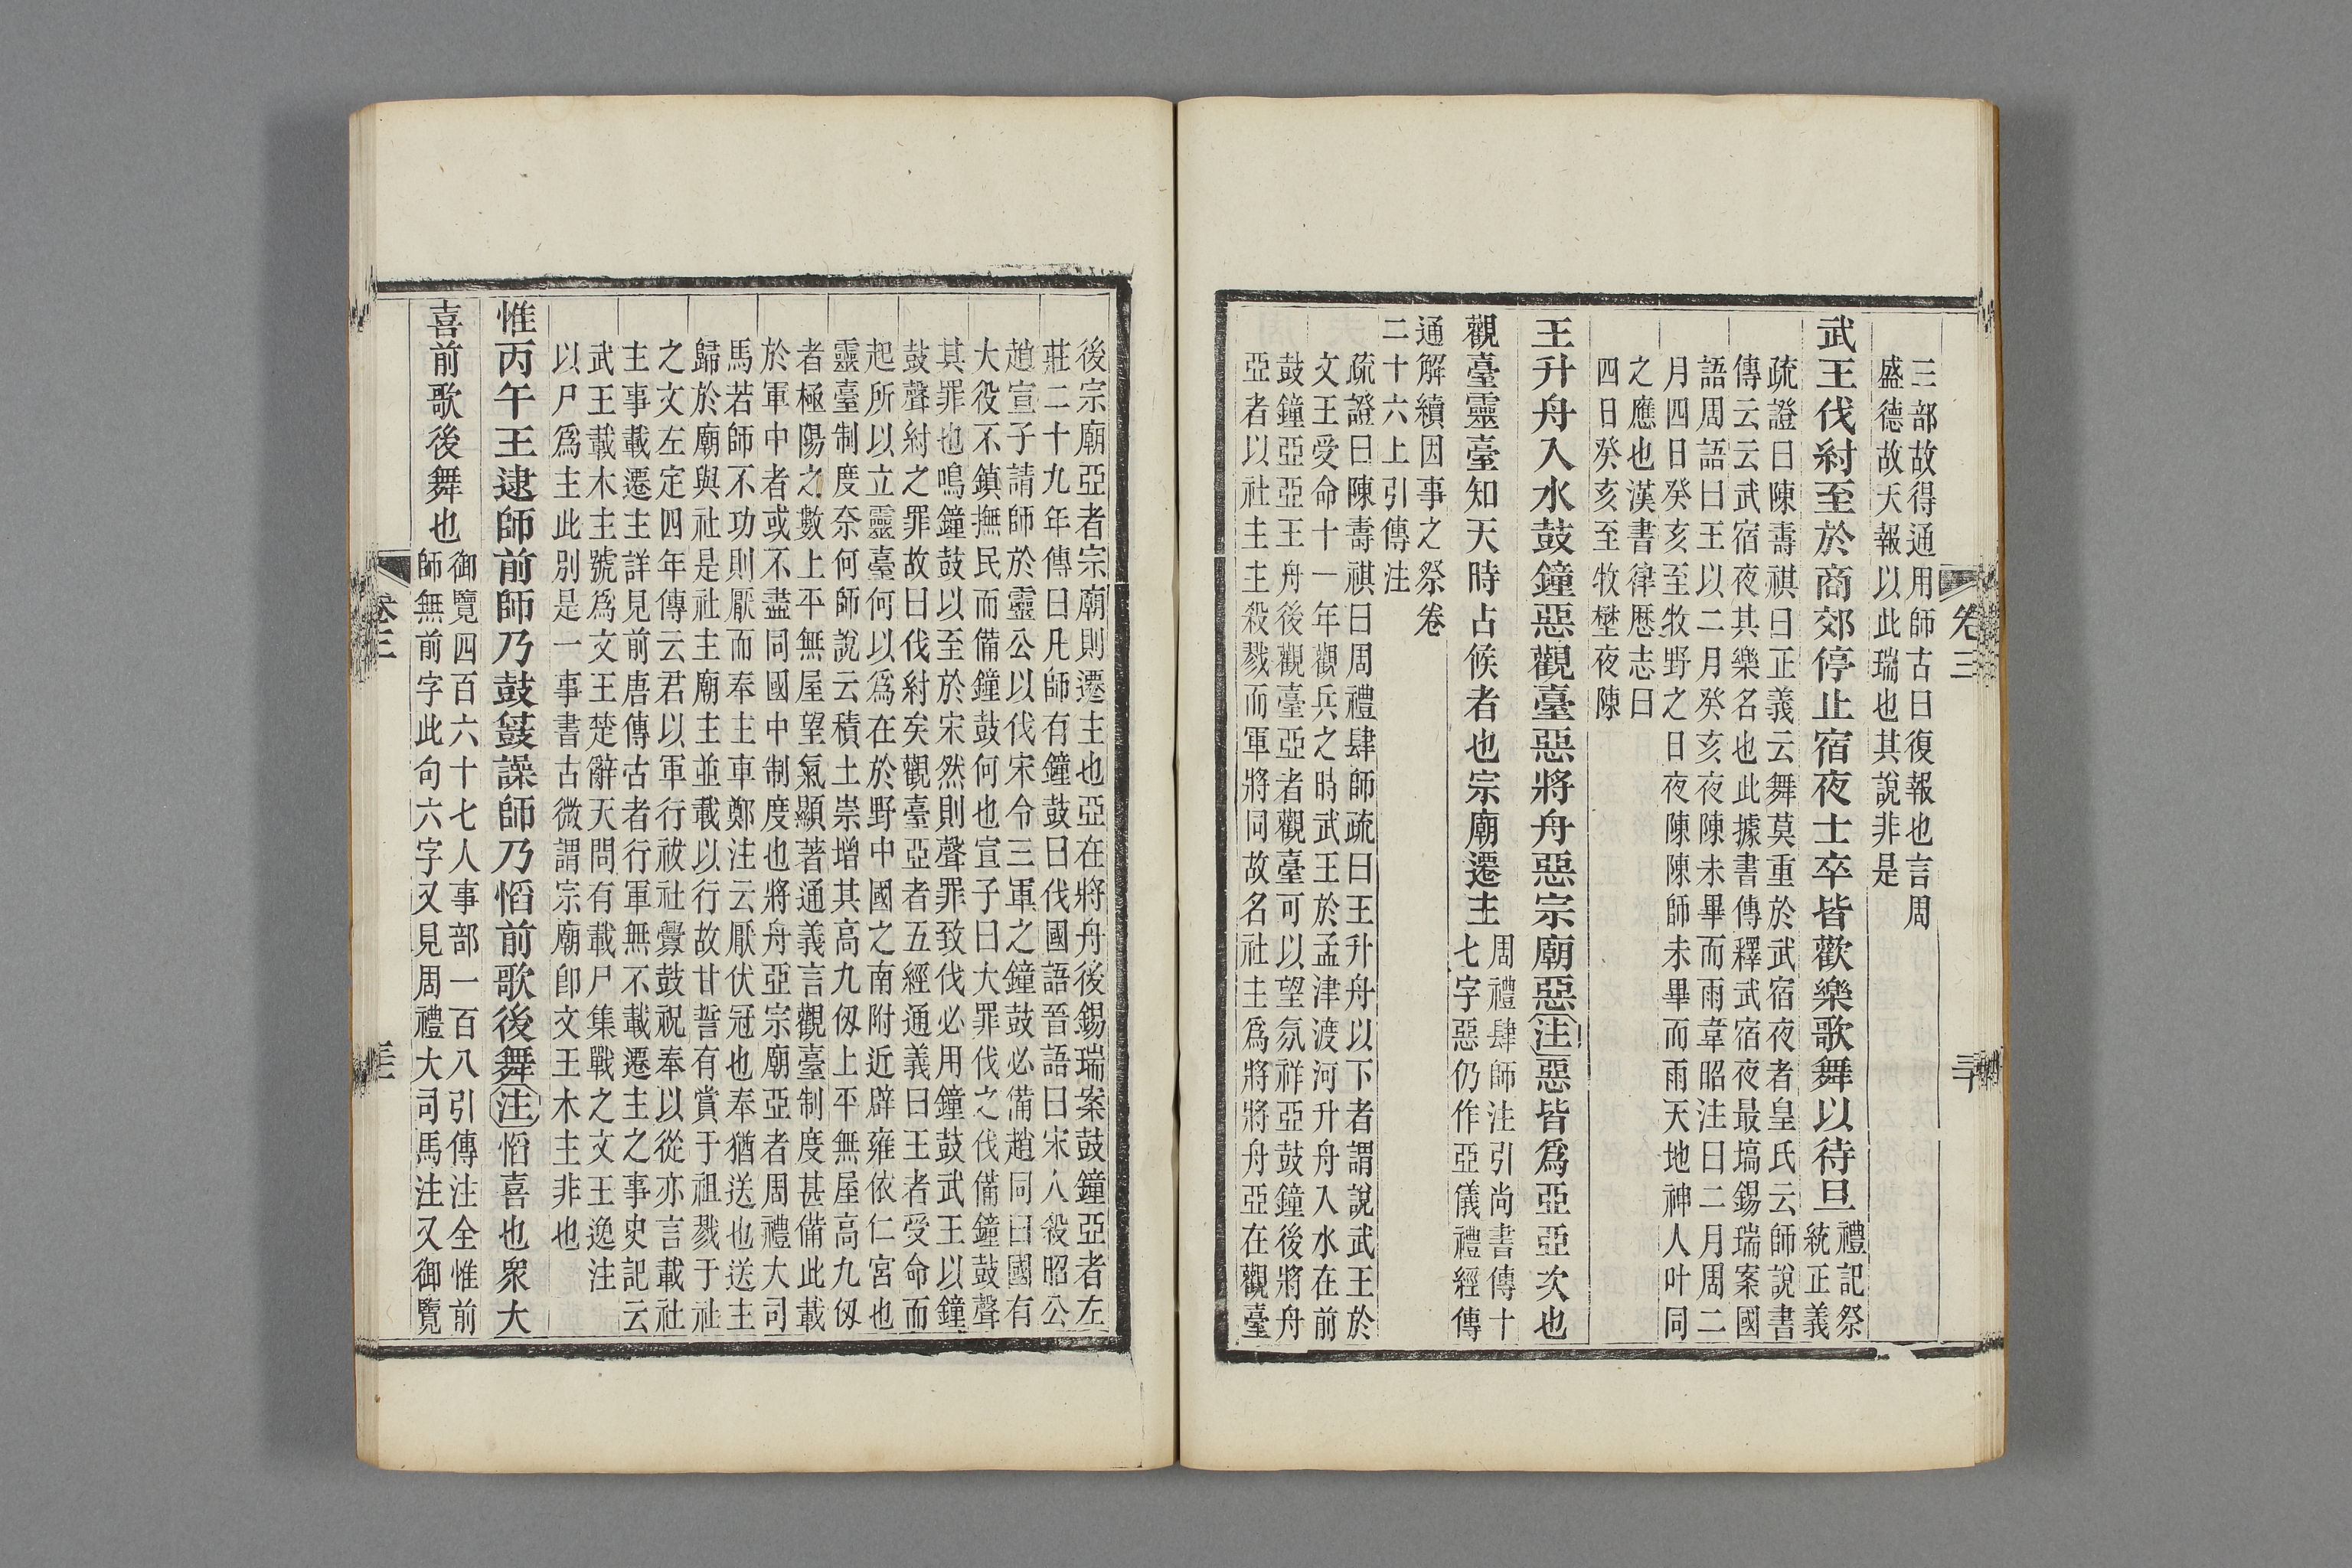 三部故得通用師古曰復報也言周
盛德故天報以此瑞也其說非是
武王伐紂至於商郊停止宿夜士卒皆歡樂歌舞以待旦
禮記祭
統正義
疏證曰陳壽祺曰正義云舞莫重於武宿夜者皇氏云師說書
傳云云武宿夜其樂名也此據書傳釋武宿夜最塙錫瑞案國
語周語曰王以二月癸亥夜陳未畢而雨韋昭注曰二月周二
月四日癸亥至牧野之日夜陳陳師未畢而雨雨天地神人叶同
之應也漢書律厤志曰
四日癸亥至牧壄夜陳
王升舟入水鼓鐘惡觀臺惡將舟惡宗廟惡注惡皆爲亞亞次也
觀臺靈臺知天時占候者也宗廟遷主
周禮肆師注引尚書傳十
七字惡仍作亞儀禮經傳
通解續因事之祭卷
二十六上引傳注
疏證曰陳壽祺曰周禮肆師疏曰王升舟以下者謂說武王於
文王受命十一年觀兵之時武王於孟津渡河升舟入水在前
鼓鐘亞亞王舟後觀臺亞者觀臺可以望氛祥亞鼓鐘後將舟
亞者以社主主殺戮而軍將同故名社主爲將將舟亞在觀臺
卷三
後宗廟亞者宗廟則遷主也亞在將舟後錫瑞案鼓鐘亞者左
莊二十九年傳曰凡師有鐘鼓曰伐國語晉語曰宋人殺昭公
趙宣子請師於靈公以伐宋令三軍之鐘鼓必備趙同曰國有
大役不鎮撫民而備鐘鼓何也宣子曰大罪伐之伐備鐘鼓聲
其罪也鳴鐘鼓以至於宋然則聲罪致伐必用鐘鼓武王以鐘
鼓聲紂之罪故曰伐紂矣觀臺亞者五經通義曰王者受命而
起所以立靈臺何以爲在於野中國之南附近辟雍依仁宮也
靈臺制度奈何師說云積土崇增其高九仭上平無屋高九仭
者極陽之數上平無屋望氣顯著通義言觀臺制度甚備此載
於軍中者或不盡同國中制度也將舟亞宗廟亞者周禮大司
馬若師不功則厭而奉主車鄭注云厭伏冠也奉猶送也送主
歸於廟與社是社主廟主並載以行故甘誓有賞于祖戮于社
之文左定四年傳云君以軍行祓社釁鼓祝奉以從亦言載社
主事載遷主詳見前唐傳古者行軍無不載遷主之事史記云
武王載木主號爲文王楚辭天問有載尸集戰之文王逸注
以尸爲主此別是一事書古微謂宗廟卽文王木主非也
惟丙午王逮師前師乃鼓𡔷譟師乃慆前歌後舞注慆喜也眾大
喜前歌後舞也
御覽四百六十七人事部一百八引傳注全惟前
師無前字此句六字又見周禮大司馬注又御覽
卷三